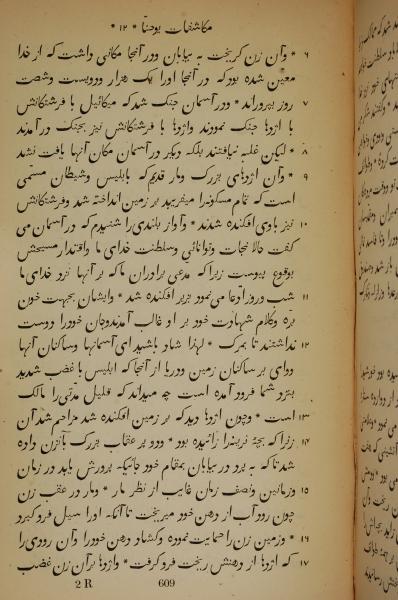 مکاشفات یوحنّا * ۱۲ *
۶ * وآن زن کریخت به بیابان ودر آنجا مکانی داشت که از خدا
معیّن شده بود که در آنجا اورا یک هزار ودویست وشصت
۷ روز بپروراند * ودر آسمان جنک شد که میکائیل با فرشتکانش
با اژدها جنک نمودند واژدها با فرشتکانش نیز بجنک در آمدند
۸ * لیکن غلبه نیافتند بلکه دیکر در آسمان مکان آنها یافت نشد
۹ * وآن اژدهای بزرک ومار قدیم که بابلیس وشیطان مسمّی
است که تمام مسکونرا میفریبد بر زمین انداخته شد وفرشتکانش
۱۰ نیز باوی افکنده شدند * وآواز بلندی را شنیدم که در آسمان می
کفت حالا نجات وتوانائی وسلطنت خدای ما واقتدار مسیحش
بوقوع پیوست زیرا که مدعی برادران ما که بر آنها نزد خدای ما
۱۱ شب وروز ادعا می نمود بزیر افکنده شد * وایشان بجهت خون
برّه وکلام شهادت خود بر او غالب آمدند وجان خودرا دوست
۱۲ نداشتند تا بمرک * لهذا شاد باشید ای آسمانها وساکنان آنها
ووای بر ساکنان زمین ودریا از آنجا که ابلیس با غضب شدید
بنزد شما فرود آمده است چه میداند که قلیل مدّتی را مالک
۱۳ است * وچون اژدها دید که بر زمین افکنده شد مزاحم شد آن
۱۴ زنرا که بچهٔ نرینه را زائیده بود * ودو پر عقاب بزرک بآن زن داده
شد تا که به پرد در بیابان بمقام خود جائیکه پرورش یابد در زمان
۱۵ وزمانین ونصف زمان غایب از نظر مار * ومار در عقب زن
چون رود آب از دهن خود میریخت تا آنکه اورا سیل فرو کیرد
۱۶ * وزمین زن را حمایت نموده وکشاد دهن خودرا وآن رودی را
۱۷ که اژدها از دهنش ریخت فرو کرفت * واژدها بر آن زن غضب
2 R 609